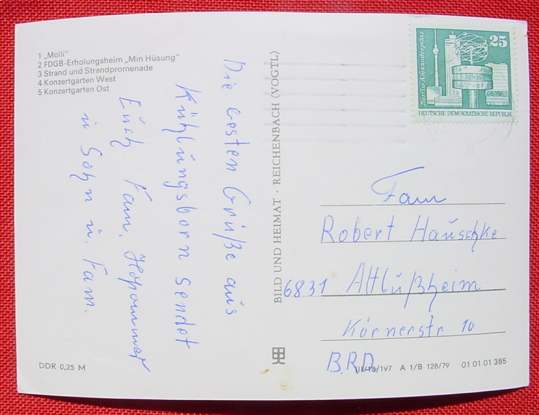 1 „Molli“
2 FDGB-Erholungsheim „Min Hüsung“
3 Strand und Strandpromenade
4 Konzertgarten West
5 Konzertgarten Ost
Die besten Grüße aus
Kühlungsborn sendet
Euch Fam.
u Sohn u. Fam.
DDR 0,25 M
BILD UND HEIMAT · REICHENBACH (VOGTL)
25
Berlin, Alexanderplatz
DEUTSCHE DEMOKRATISCHE REPUBLIK
Fam
Robert Hauschke
6831 Altlußheim
Körnerstr 10
BRD
A 1/B 128/79 01 01 01 385